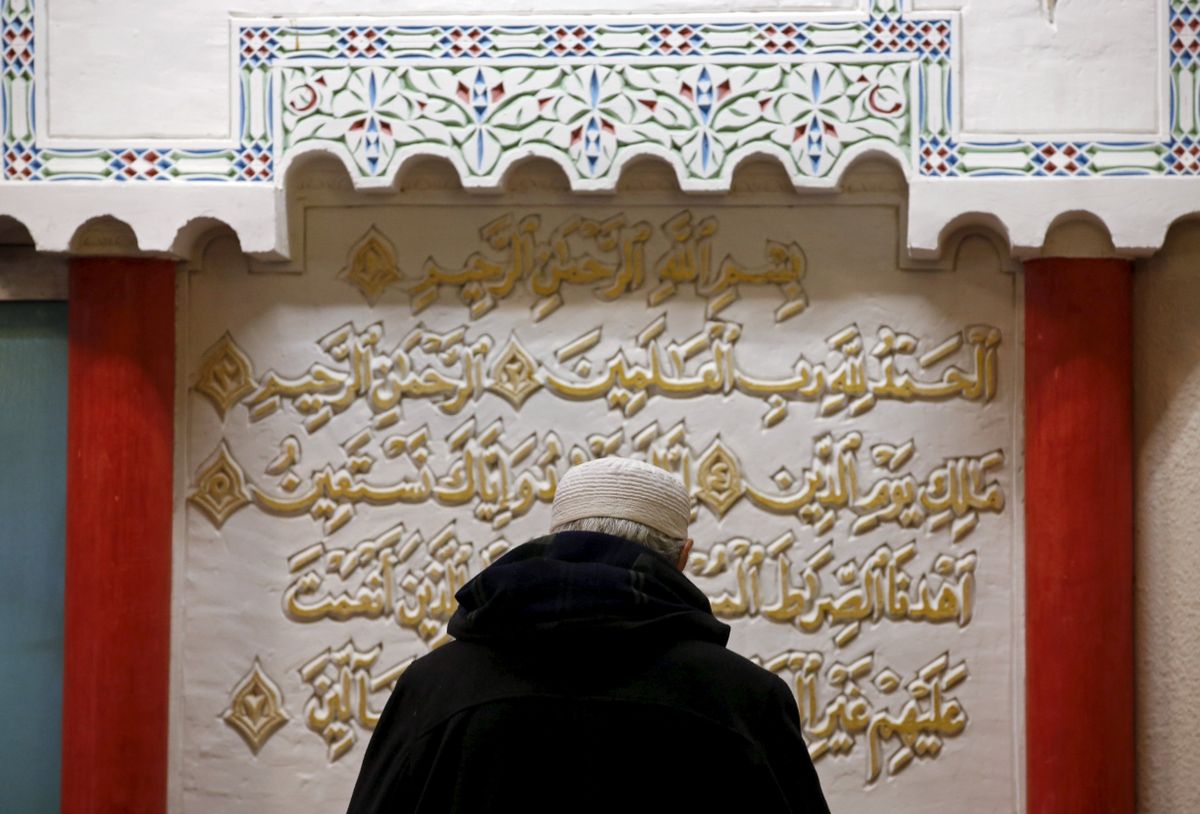 بِسْمِ اللَّهِ الرَّحْمَٰنِ الرَّحِيمِ ١
اَلْحَمْدُ لِلَّهِ رَبِّ الْعَٰلَمِينَ ٢ الرَّحْمَٰنِ الرَّحِيمِ ٣
مَٰلِكِ يَوْمِ الدِّينِ ٤ وَاِيَّاكَ نَسْتَعِينُ ٥
اَهْدِنَا الصِّرَٰطَ الَّذِينَ اَنْعَمْتَ
عَلَيْهِمْ غَيْرِ ٧